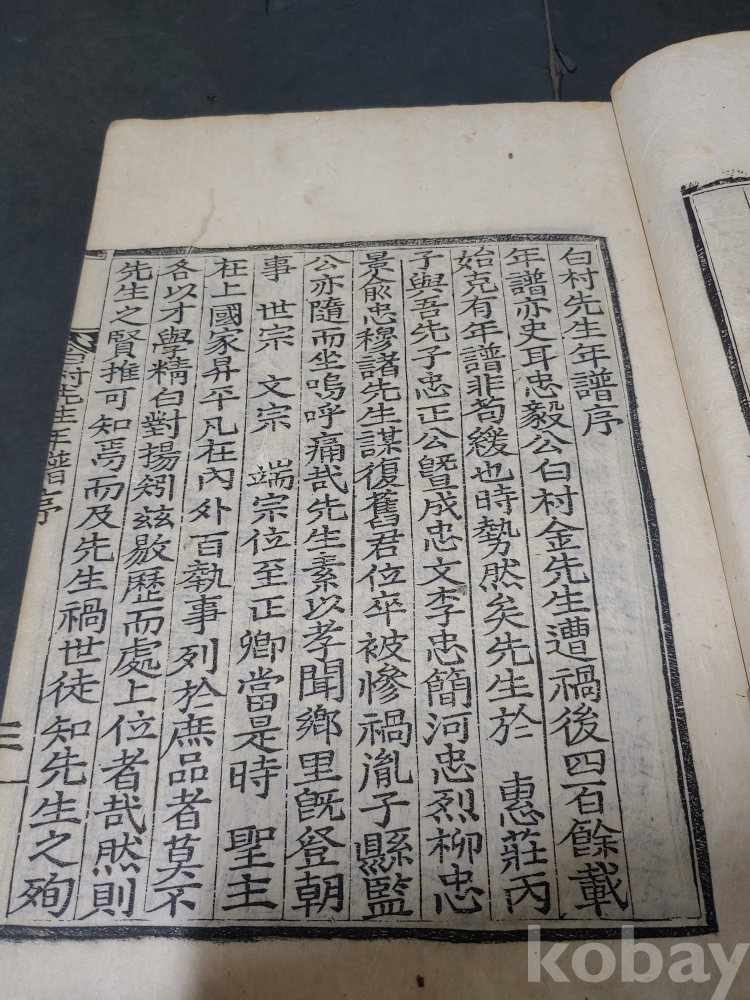 白村先生年譜序
年譜亦史耳忠毅公白村金先生遭禍後四百餘載
始克有年譜非苟緩也時勢然矣先生於 惠莊丙
子與吾先子忠正公曁成忠文李忠簡河忠烈柳忠
景兪忠穆諸先生謀復舊君位卒被慘禍胤子縣監
公亦隨而坐嗚呼痛哉先生素以孝聞鄕里旣登朝
事 世宗 文宗 端宗位至正卿當是時 聖主
在上國家昇平凡在內外百執事列於庶品者莫不
各以才學精白對揚矧玆敭歷而處上位者哉然則
先生之賢推可知焉而及先生禍世徒知先生之殉
白村先生年譜序
三
kobay